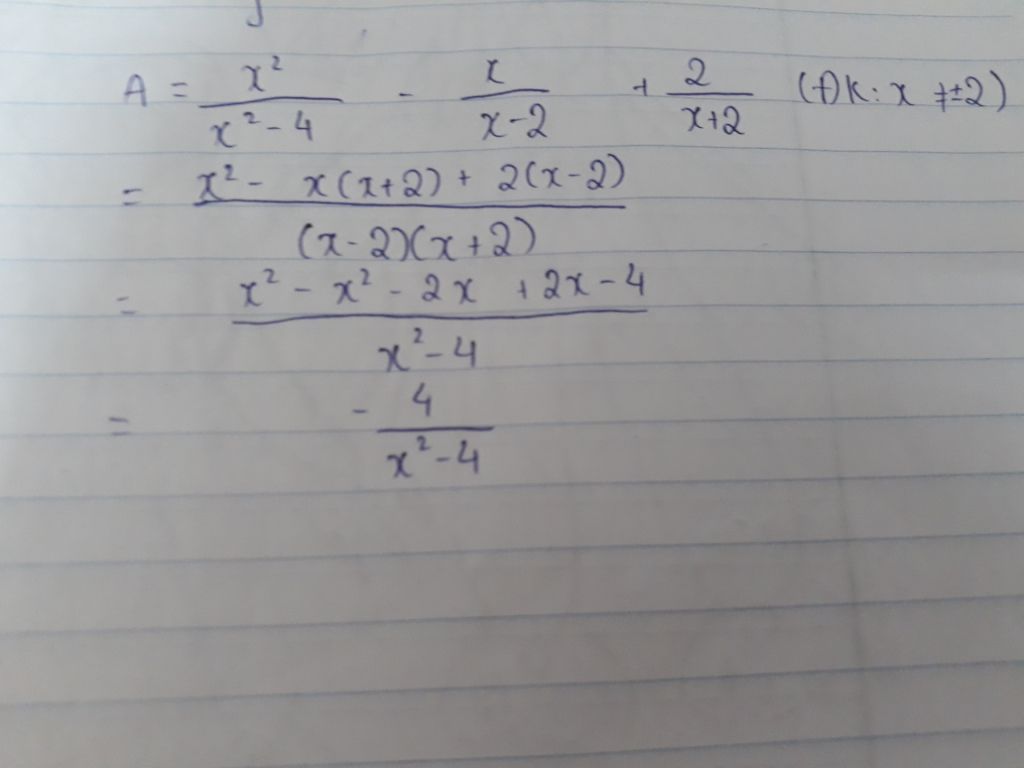 A = x²/(x² - 4) - x/(x-2) + 2/(x+2) (ĐK: x ≠ ±2)
= (x² - x(x+2) + 2(x-2))/((x-2)(x+2))
= (x² - x² - 2x + 2x - 4)/(x² - 4)
= - 4/(x² - 4)